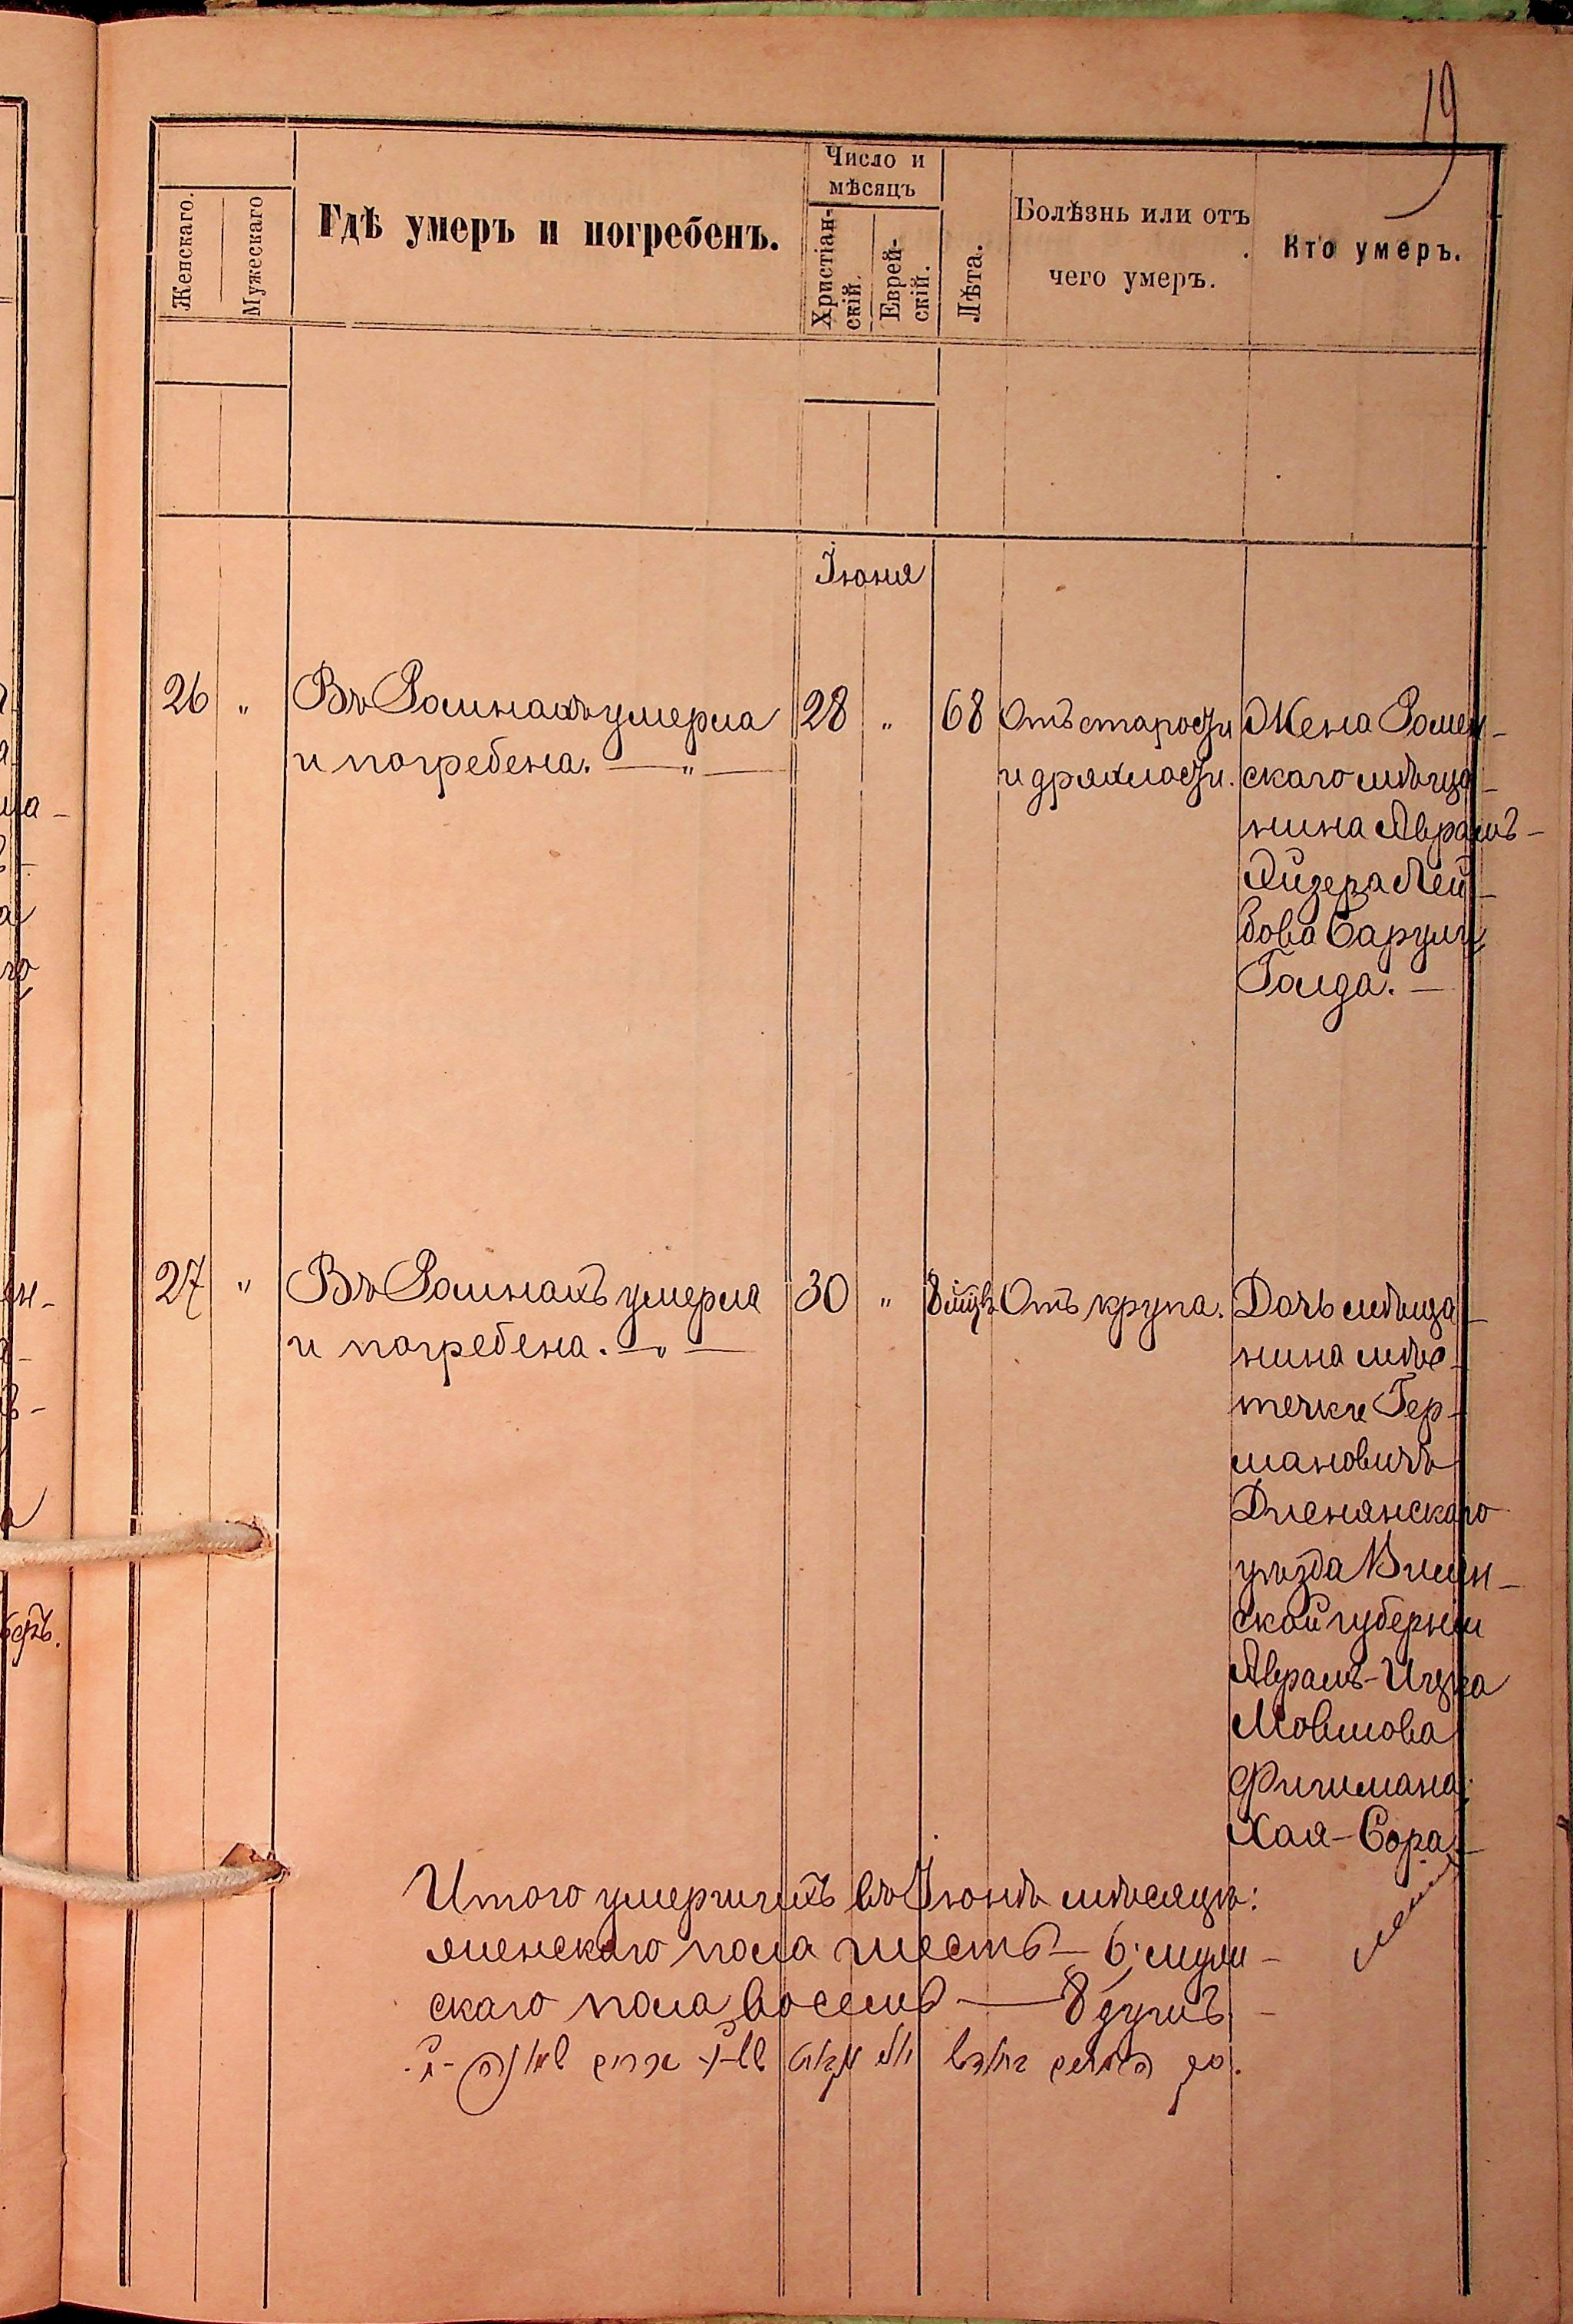 19
Женскаго.
Мужескаго
Гдѣ умеръ и погребенъ.
Число и
мѣсяцъ
Христіан-
скій.
Еврей-
скій.
Лѣта.
Болѣзнь или отъ
чего умеръ.
Кто умеръ.
Іюня
26 " Въ Ромнахъ умерла
и погребена. — " —
28 " 68
Отъ старости
и дряхлости.
Жена Ромен-
скаго мѣща-
нина Аврамъ-
Айзера Лей-
бова Сарули
Голда. —
27 " Въ Ромнахъ умерла
и погребена. — " —
30 " 8 мцъ
Отъ крупа.
Дочь мѣща-
нина мѣс-
течка Гер-
мановичъ
Дисненскаго
уѣзда Вилен-
ской губерніи
Аврамъ-Ицка
Мовшова
Хая-Сора
Итого умершихъ въ Іюнѣ мѣсяцѣ:
женскаго пола шесть — 6; муж-
скаго пола восемь — 8 душъ. —